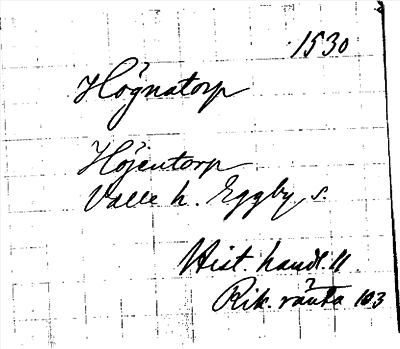 1530
Högnatorp
Höjentorp
Valle h. Eggby s.
Hist. handl. 11
Rik. ränta 103